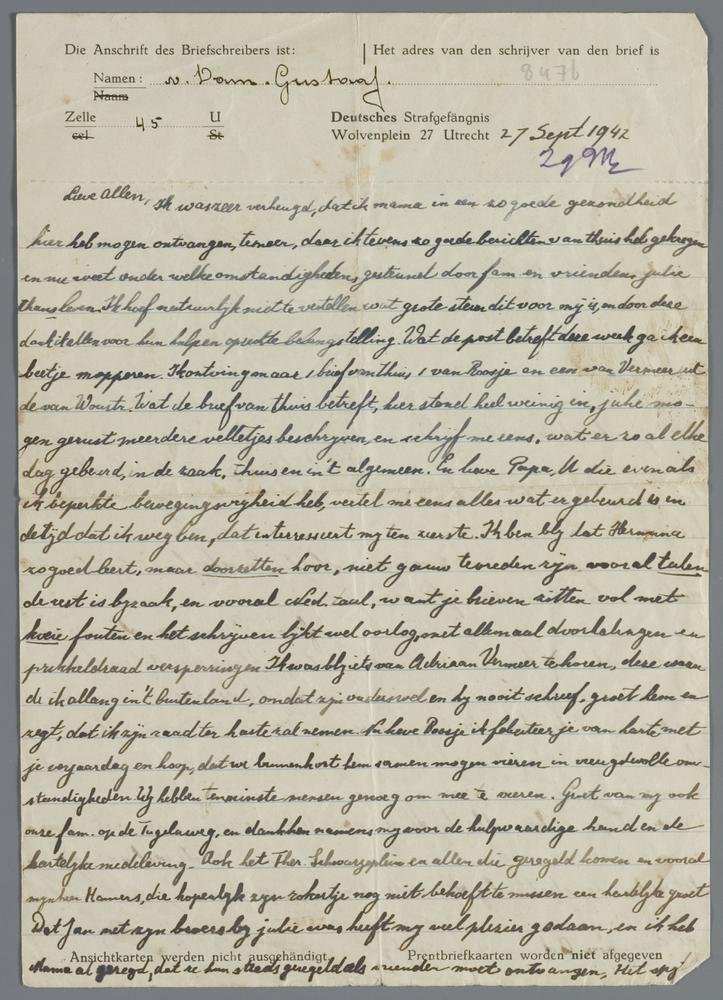 Die Anschrift des Briefschreibers ist: Het adres van den schrijver van den brief is
Namen: v. Dam. Gustaaf. 8476
Naam
Zelle 45 U Deutsches Strafgefängnis
cel St Wolvenplein 27 Utrecht 27 Sept 1942
Lieve allen, Ik was zeer verheugd, dat ik mama in een zo goede gezondheid
hier heb mogen ontvangen, temeer, daar ik tevens zo goede berichten van thuis heb gekregen
en nu weet onder welke omstandigheden, gesteund door fam en vrienden, jullie
thans leven. Ik hoef natuurlijk niet te vertellen wat grote steun dit voor mij is, en door deze
dank ik allen voor hun hulp en oprechte belangstelling. Wat de post betreft deze week ga ik een
beetje mopperen. Ik ontving maar 1 brief van thuis 1 van Roosje en een van Vermeer uit
de van Woustr. Wat de brief van thuis betreft, hier stond heel weinig in, julie mo-
gen gerust meerdere velletjes beschrijven, en schrijf me eens, wat er zo al elke
dag gebeurd, in de zaak, thuis en in't algemeen. En lieve Papa, U die evenals
ik beperkte bewegingsvrijheid heb, vertel me eens alles wat er gebeurd is in
de tijd dat ik weg ben, dat interresseert mij ten zeerste. Ik ben blij dat Hermina
zo goed leert, maar doorzetten hoor, niet gauw tevreden zijn vooral talen
de rest is bijzaak, en vooral Ned. taal, want je brieven zitten vol met
fouten en het schrijven lijkt wel oorlog, met allemaal doorhalingen en
prikkeldraad versperringen Ik was blij iets van Adriaan Vermeer te horen, deze waan
de ik allang in't buitenland, omdat zijn vader en hij nooit schreef, groet hem en
zegt, dat ik zijn raad ter harte zal nemen. Nu lieve Roosje ik feliciteer je van harte met
je verjaardag en hoop, dat we binnenkort hem samen mogen vieren in vreugdevolle om-
standigheden. Wij hebben tenminste mensen genoeg om mee te vieren. Groet van mij ook
onze fam. op de Tugelaweg, en dank hen namens mij voor de hulpvaardige hand en de
hartelijke medeleving. Ook het Ther. Schwartzeplein en allen die geregeld komen en vooral
mijnheer Hamers, die hopenlijk zijn zoontje nog niet behoeft te missen een hartelijke groet
Dat Jan met zijn broers bij julie was heeft mij veel plezier gedaan, en ik heb
Ansichtkarten werden nicht ausgehändigt Prentbriefkaarten worden niet afgegeven
Mama al gezegd, dat ze hun steeds geregeld als vrienden moet ontvangen. Het